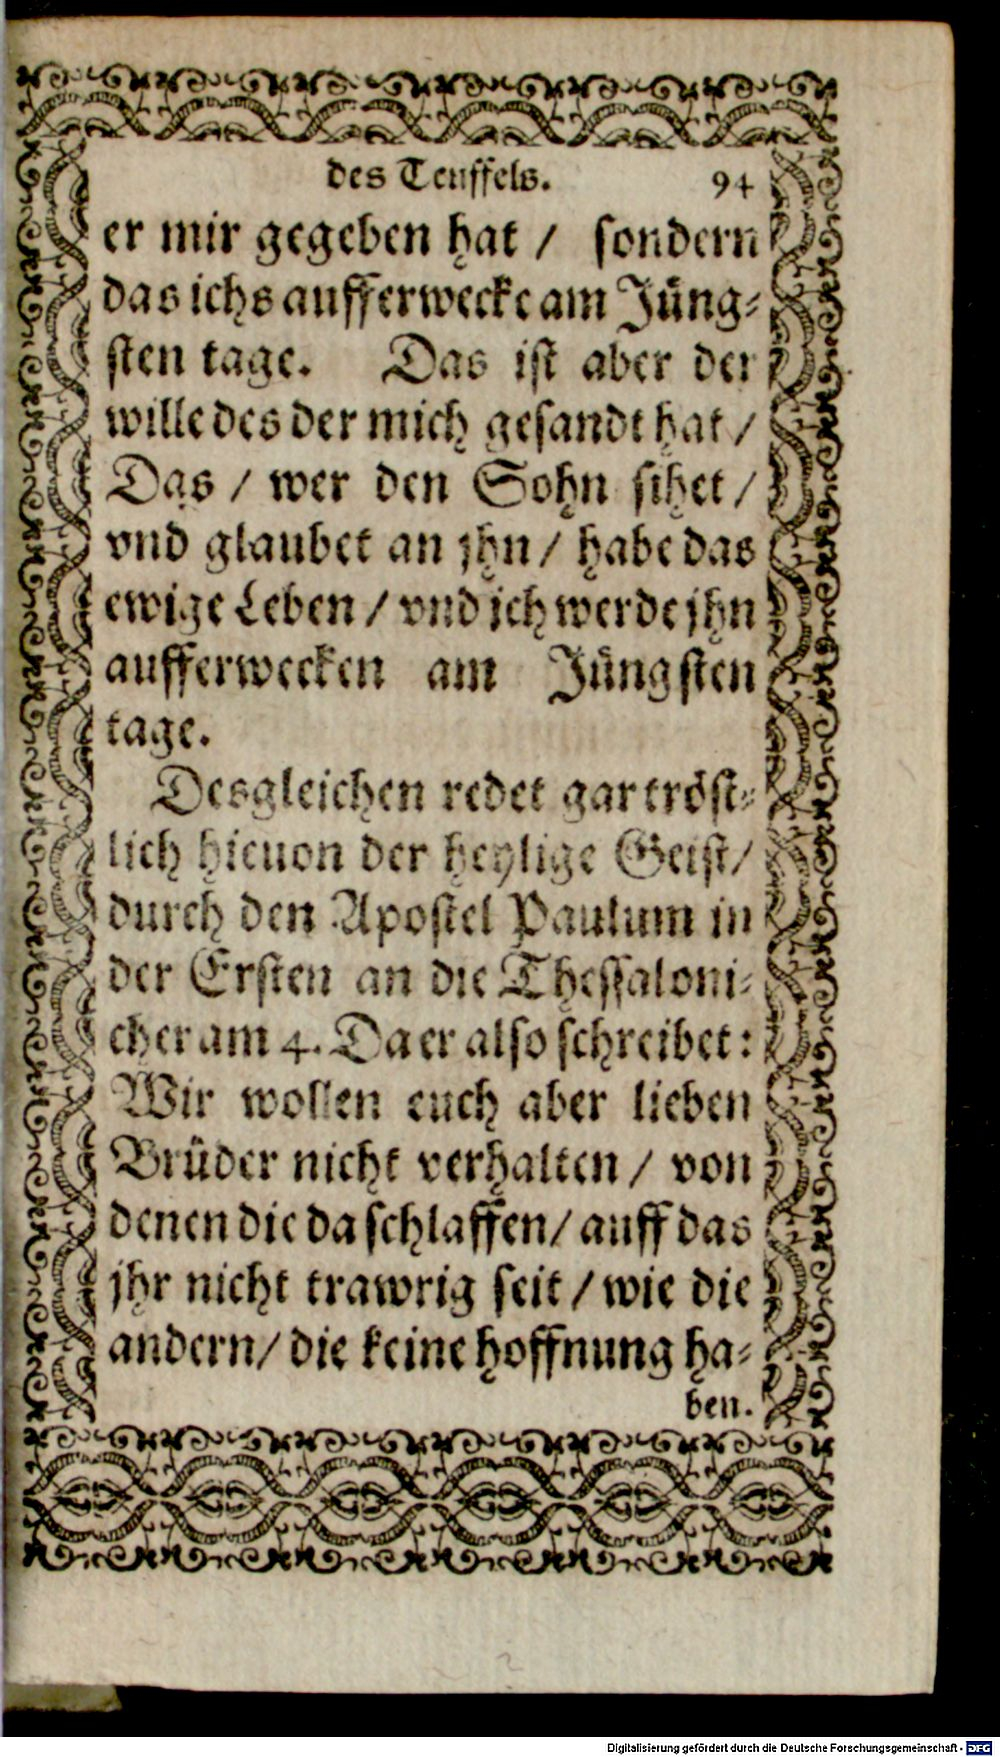 des Teuffels. 94
er mir gegeben hat / sondern
das ichs aufferwecke am Jüng-
sten tage. Das ist aber der
wille des der mich gesandt hat /
Das / wer den Sohn sihet /
vnd glaubet an jhn / habe das
ewige Leben / vnd jch werde jhn
aufferwecken am Jüngsten
tage.
Desgleichen redet gar tröst-
lich hieuon der heylige Geist /
durch den Apostel Paulum in
der Ersten an die Thessaloni-
cher am 4. Da er also schreibet:
Wir wollen euch aber lieben
Brüder nicht verhalten / von
denen die da schlaffen / auff das
jhr nicht trawrig seit / wie die
andern / die keine hoffnung ha-
ben.
Digitalisierung gefördert durch die Deutsche Forschungsgemeinschaft - DFG